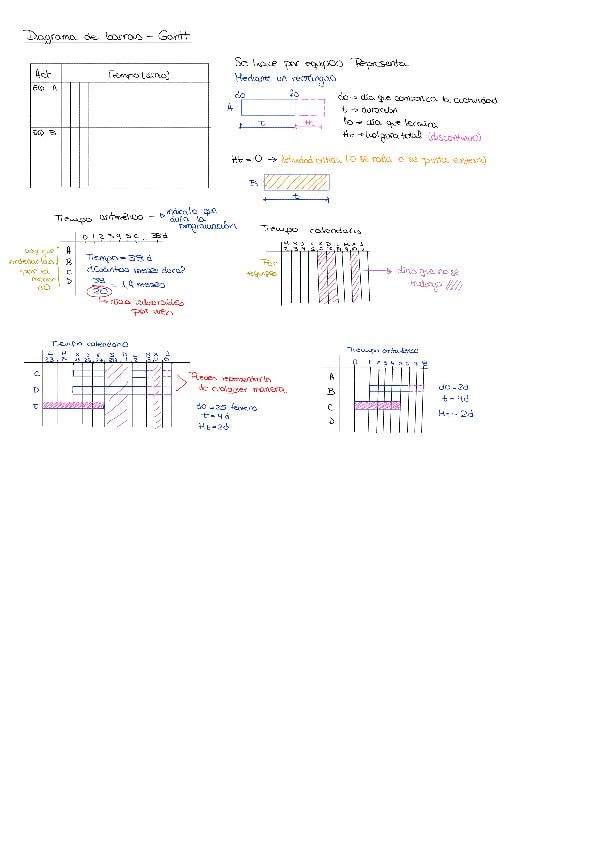 Diagrama de barras - Gantt
Se hace por equipos. Representa
Mediante un rectángulo
Act. Tiempo (días)
EQ A
EQ B
do fo
A
t Ht
do → día que comienza la actividad
t → duración
fo → día que termina
Ht → holgura total (discontinuo)
Ht = 0 → (actividad crítica) (o se raya o se pinta entera)
B
t
Tiempo aritmético → número que dura la programación
0 1 2 3 4 5 6 . 38 d
A
B
C
D
hay que ordenarlas por el menor do
Tiempo = 38 d
¿Cuántos meses dura?
38
20
= 1,9 meses
días laborables por mes
Tiempo calendario
M X J V S D L M X J
Por equipos
→ días que no se trabaja ////
Tiempo calendario
C
D
E
Puedes representarlo de cualquier manera
do = 25 febrero
t = 4d
Ht = 2d
Tiempo aritmético
0 1 2 3 4 5 6 7 8
A
B
C
D
do = 2d
t = 4d
Ht = 2d